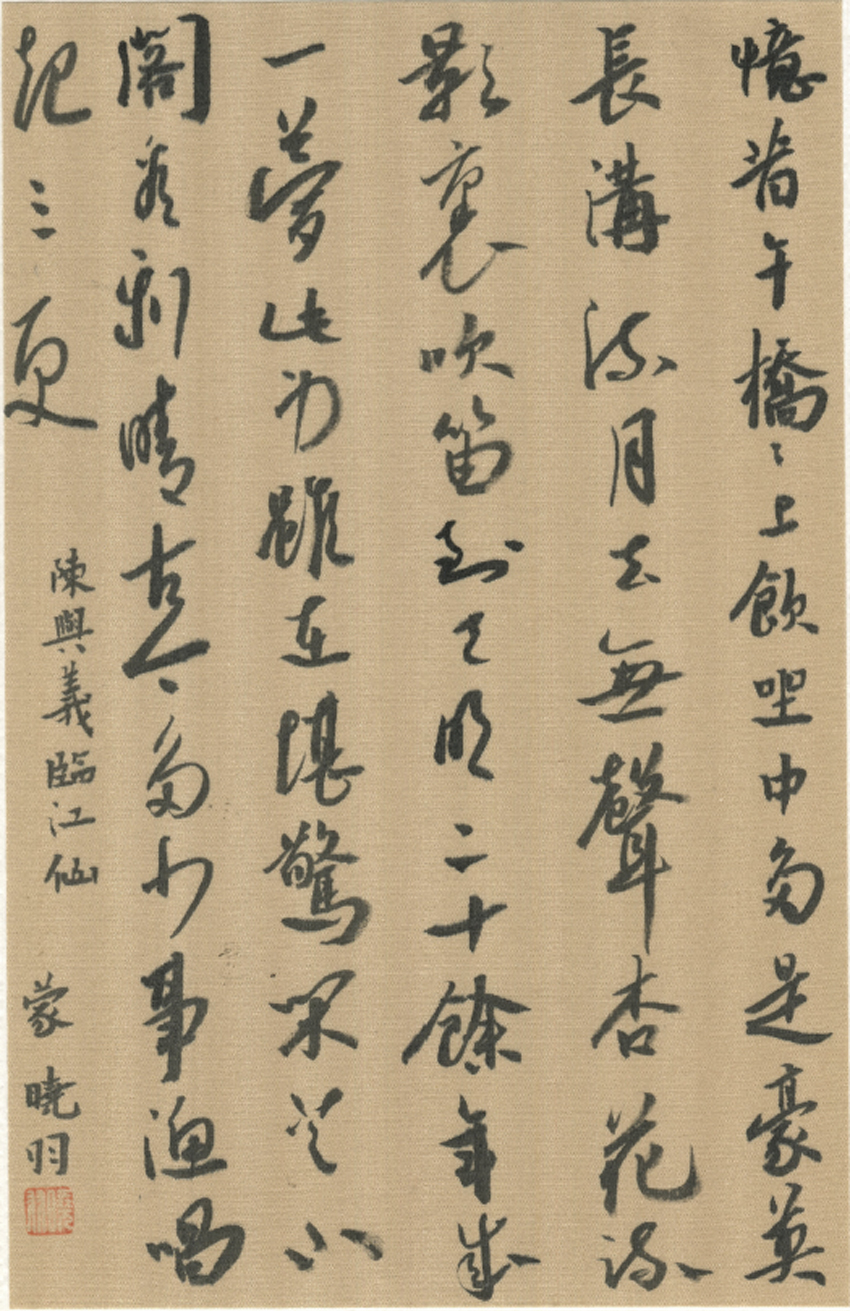 憶昔午橋〻上飲坐中多是豪英
長溝流月去無聲杏花疏
影裏吹笛到天明二十餘年成
一夢此身雖在堪驚閑登小
閣看新晴古今多少事漁唱
起三更
陳與義臨江仙 蒙曉羽